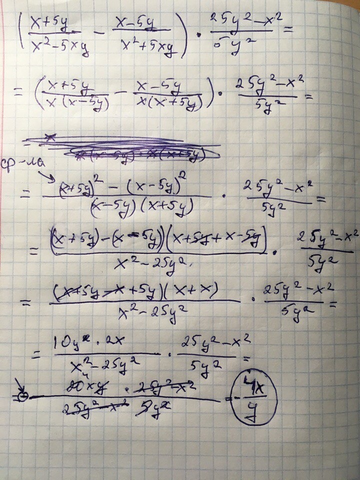 ((x+5y)/(x²-5xy) - (x-5y)/(x²+5xy)) · (25y²-x²)/(5y²) =
= ((x+5y)/(x(x-5y)) - (x-5y)/(x(x+5y))) · (25y²-x²)/(5y²) =
ср-ла
= ((x+5y)² - (x-5y)²)/((x-5y)(x+5y)) · (25y²-x²)/(5y²) =
= ((x+5y)-(x-5y))(x+5y+x-5y)/(x²-25y²) · (25y²-x²)/(5y²)
= (x+5y-x+5y)(x+x)/(x²-25y²) · (25y²-x²)/(5y²) =
= (10y · 2x)/(x²-25y²) · (25y²-x²)/(5y²) =
(20xy · 25y²-x²)/(25y²-x² 5y²) = -4x/y